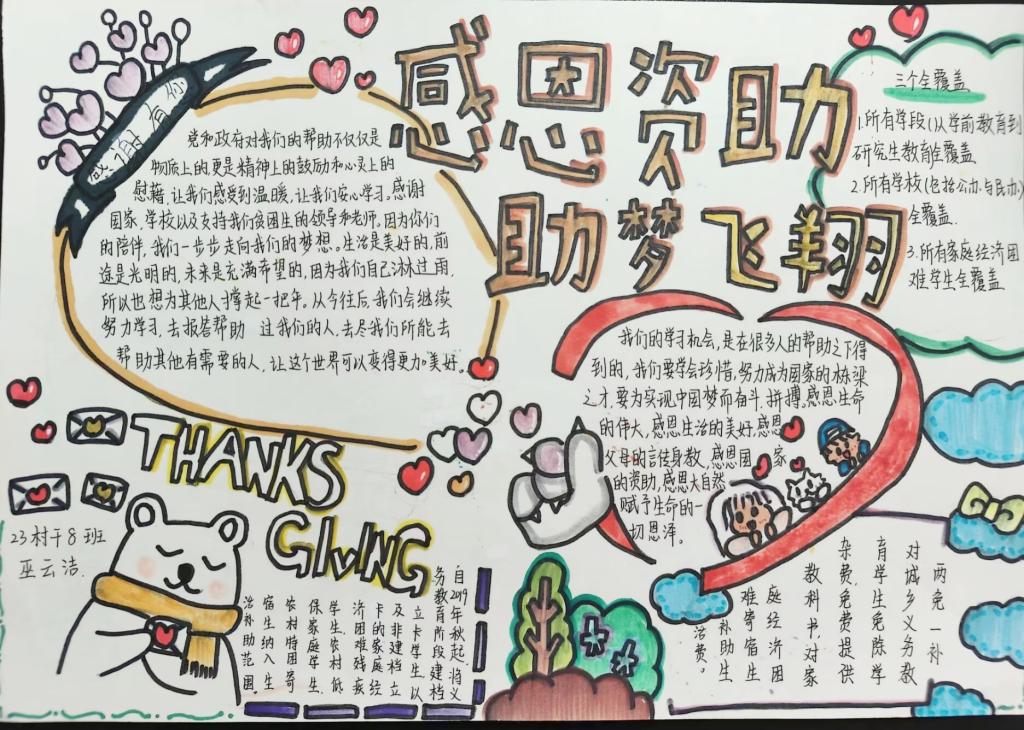 感恩资助
助梦飞翔
感谢有你
党和政府对我们的帮助不仅仅是
物质上的更是精神上的鼓励和心灵上的
慰藉,让我们感受到温暖,让我们安心学习。感谢
国家,学校以及支持我们贫困生的领导和老师。因为你们
的陪伴,我们一步步走向我们的梦想。生活是美好的,前
途是光明的,未来是充满希望的,因为我们自己淋过雨,
所以也想为其他人撑起一把伞,从今往后,我们会继续
努力学习,去报答帮助 过我们的人,去尽我们所能去
帮助其他有需要的人,让这个世界可以变得更加美好。
三个全覆盖
1.所有学段(从学前教育到
研究生教育)全覆盖
2.所有学校(包括公办与民办)
全覆盖.
3.所有家庭经济困
难学生全覆盖
我们的学习机会,是在很多人的帮助之下得
到的,我们要学会珍惜,努力成为国家的栋梁
之才,要为实现中国梦而奋斗,拼搏。感恩生命
的伟大,感恩生活的美好,感恩
父母的言传身教,感恩国 家
的资助,感恩大自然
赋予生命的一
切恩泽。
THANKS
GIVING
23村干8班
巫云洁.
自2019年秋起,将义
务教育所段建档
立卡学生以
及非建档立
卡的家庭经
济困难残疾
学生、农村低
保家庭学生、
农村特困寄
宿生纳入生
活补助范围。
两免一补
对城乡义务教
育学生免除学
杂费,免费提供
教科书,对家
庭经济困
难寄宿生
补助生
活费。